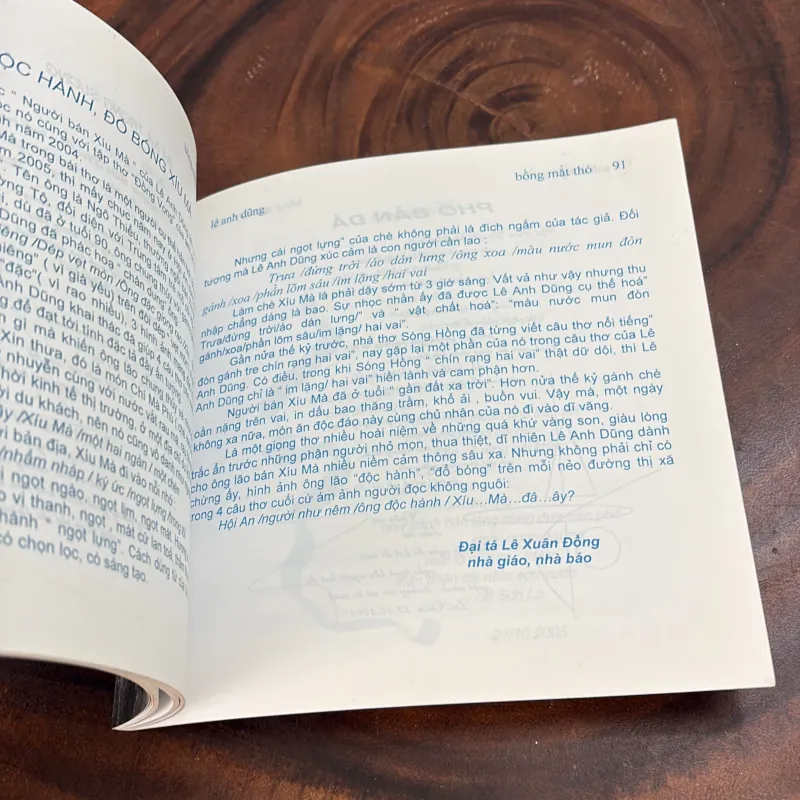 ỘC HÀNH, ĐỔ BÓNG XÍU MÀ
" Người bán Xíu Mà " của Lê Anh
ọc nó cùng với tập thơ "Đồng Vọng"
nh năm 2004.
Mà trong bài thơ là một người cụ thể
ăm 2005, thì mấy chục năm nay ở
Tên ông là Ngô Thiểu, thường
ờng Tộ, đối diện với Trung tâm
dù đã ở tuổi 90, ông cũng chưa
Dũng đã phác hoạ " chân dung"
iêng" ( vì giả yếu) trên đường
"đặc"( vì rao nhiều), 3 tiếng
Anh Dũng khai thác đã giúp 4 câu
để đạt tới tính đặc tả đầy ấn
gì mà khiến ông lão chung thuỷ
Xin thưa, đó là món Chí Mà Phù
nhuyễn cùng với nước vắt rau má
hời kinh tế thị trường, ở một địa chỉ
i du khách, nên nó cũng vô danh
ây /Xíu Mà /một hai ngàn / một chén
i bản địa, Xíu Mà đi vào nỗi nhớ
nhấm nháp / ký ức /ngọt lựng /trong
ị ngọt ngào, ngọt lịm, ngọt mát,
vị thanh, ngọt , mát cứ lan toả,
hành " ngọt lựng". Cách dùng từ
có chọn lọc, có sáng tạo.
lê anh dũng
bồng mắt thờ 91
Nhưng cái ngọt lựng" của chè không phải là đích ngắm của tác giả. Đối
tượng mà Lê Anh Dũng xúc cảm là con người cần lao :
Trưa /đứng trời /áo dán lưng /ông xoa /màu nước mun đòn
gánh /xoa /phần lõm sâu /im lặng /hai vai
Làm chè Xíu Mà là phải dậy sớm từ 3 giờ sáng. Vất vả như vậy nhưng thu
nhập chẳng đáng là bao. Sự nhọc nhằn ấy đã được Lê Anh Dũng cụ thể hoá"
Trưa/đứng trời/áo dán lưng/" và " vật chất hoá": "màu nước mun đòn
gánh/xoa/phần lõm sâu/im lặng/ hai vai".
Gần nửa thế kỷ trước, nhà thơ Sóng Hồng đã từng viết câu thơ nổi tiếng"
đòn gánh tre chín rạng hai vai", nay gặp lại một phần của nó trong câu thơ của Lê
Anh Dũng. Có điều, trong khi Sóng Hồng " chín rạng hai vai" thật dữ dội, thì Lê
Anh Dũng chỉ là " im lặng/ hai vai" hiền lành và cam phận hơn.
Người bán Xíu Mà đã ở tuổi " gần đất xa trời". Hơn nửa thế kỷ gánh chè
oằn nặng trên vai, in dấu bao thăng trầm, khổ ải , buồn vui. Vậy mà, một ngày
không xa nữa, món ăn độc đáo này cùng chủ nhân của nó đi vào dĩ vãng.
Là một giọng thơ nhiều hoài niệm về những quá khứ vàng son, giàu lòng
trắc ẩn trước những phận người nhỏ mọn, thua thiệt, dĩ nhiên Lê Anh Dũng dành
cho ông lão bán Xíu Mà nhiều niềm cảm thông sâu xa. Nhưng không phải chỉ có
chừng ấy, hình ảnh ông lão "độc hành", "đổ bóng" trên mỗi nẻo đường thị xã
trong 4 câu thơ cuối cứ ám ảnh người đọc không nguôi:
Hội An /người như nêm /ông độc hành / Xíu...Mà...đã...ây?
Đại tá Lê Xuân Đồng
nhà giáo, nhà báo